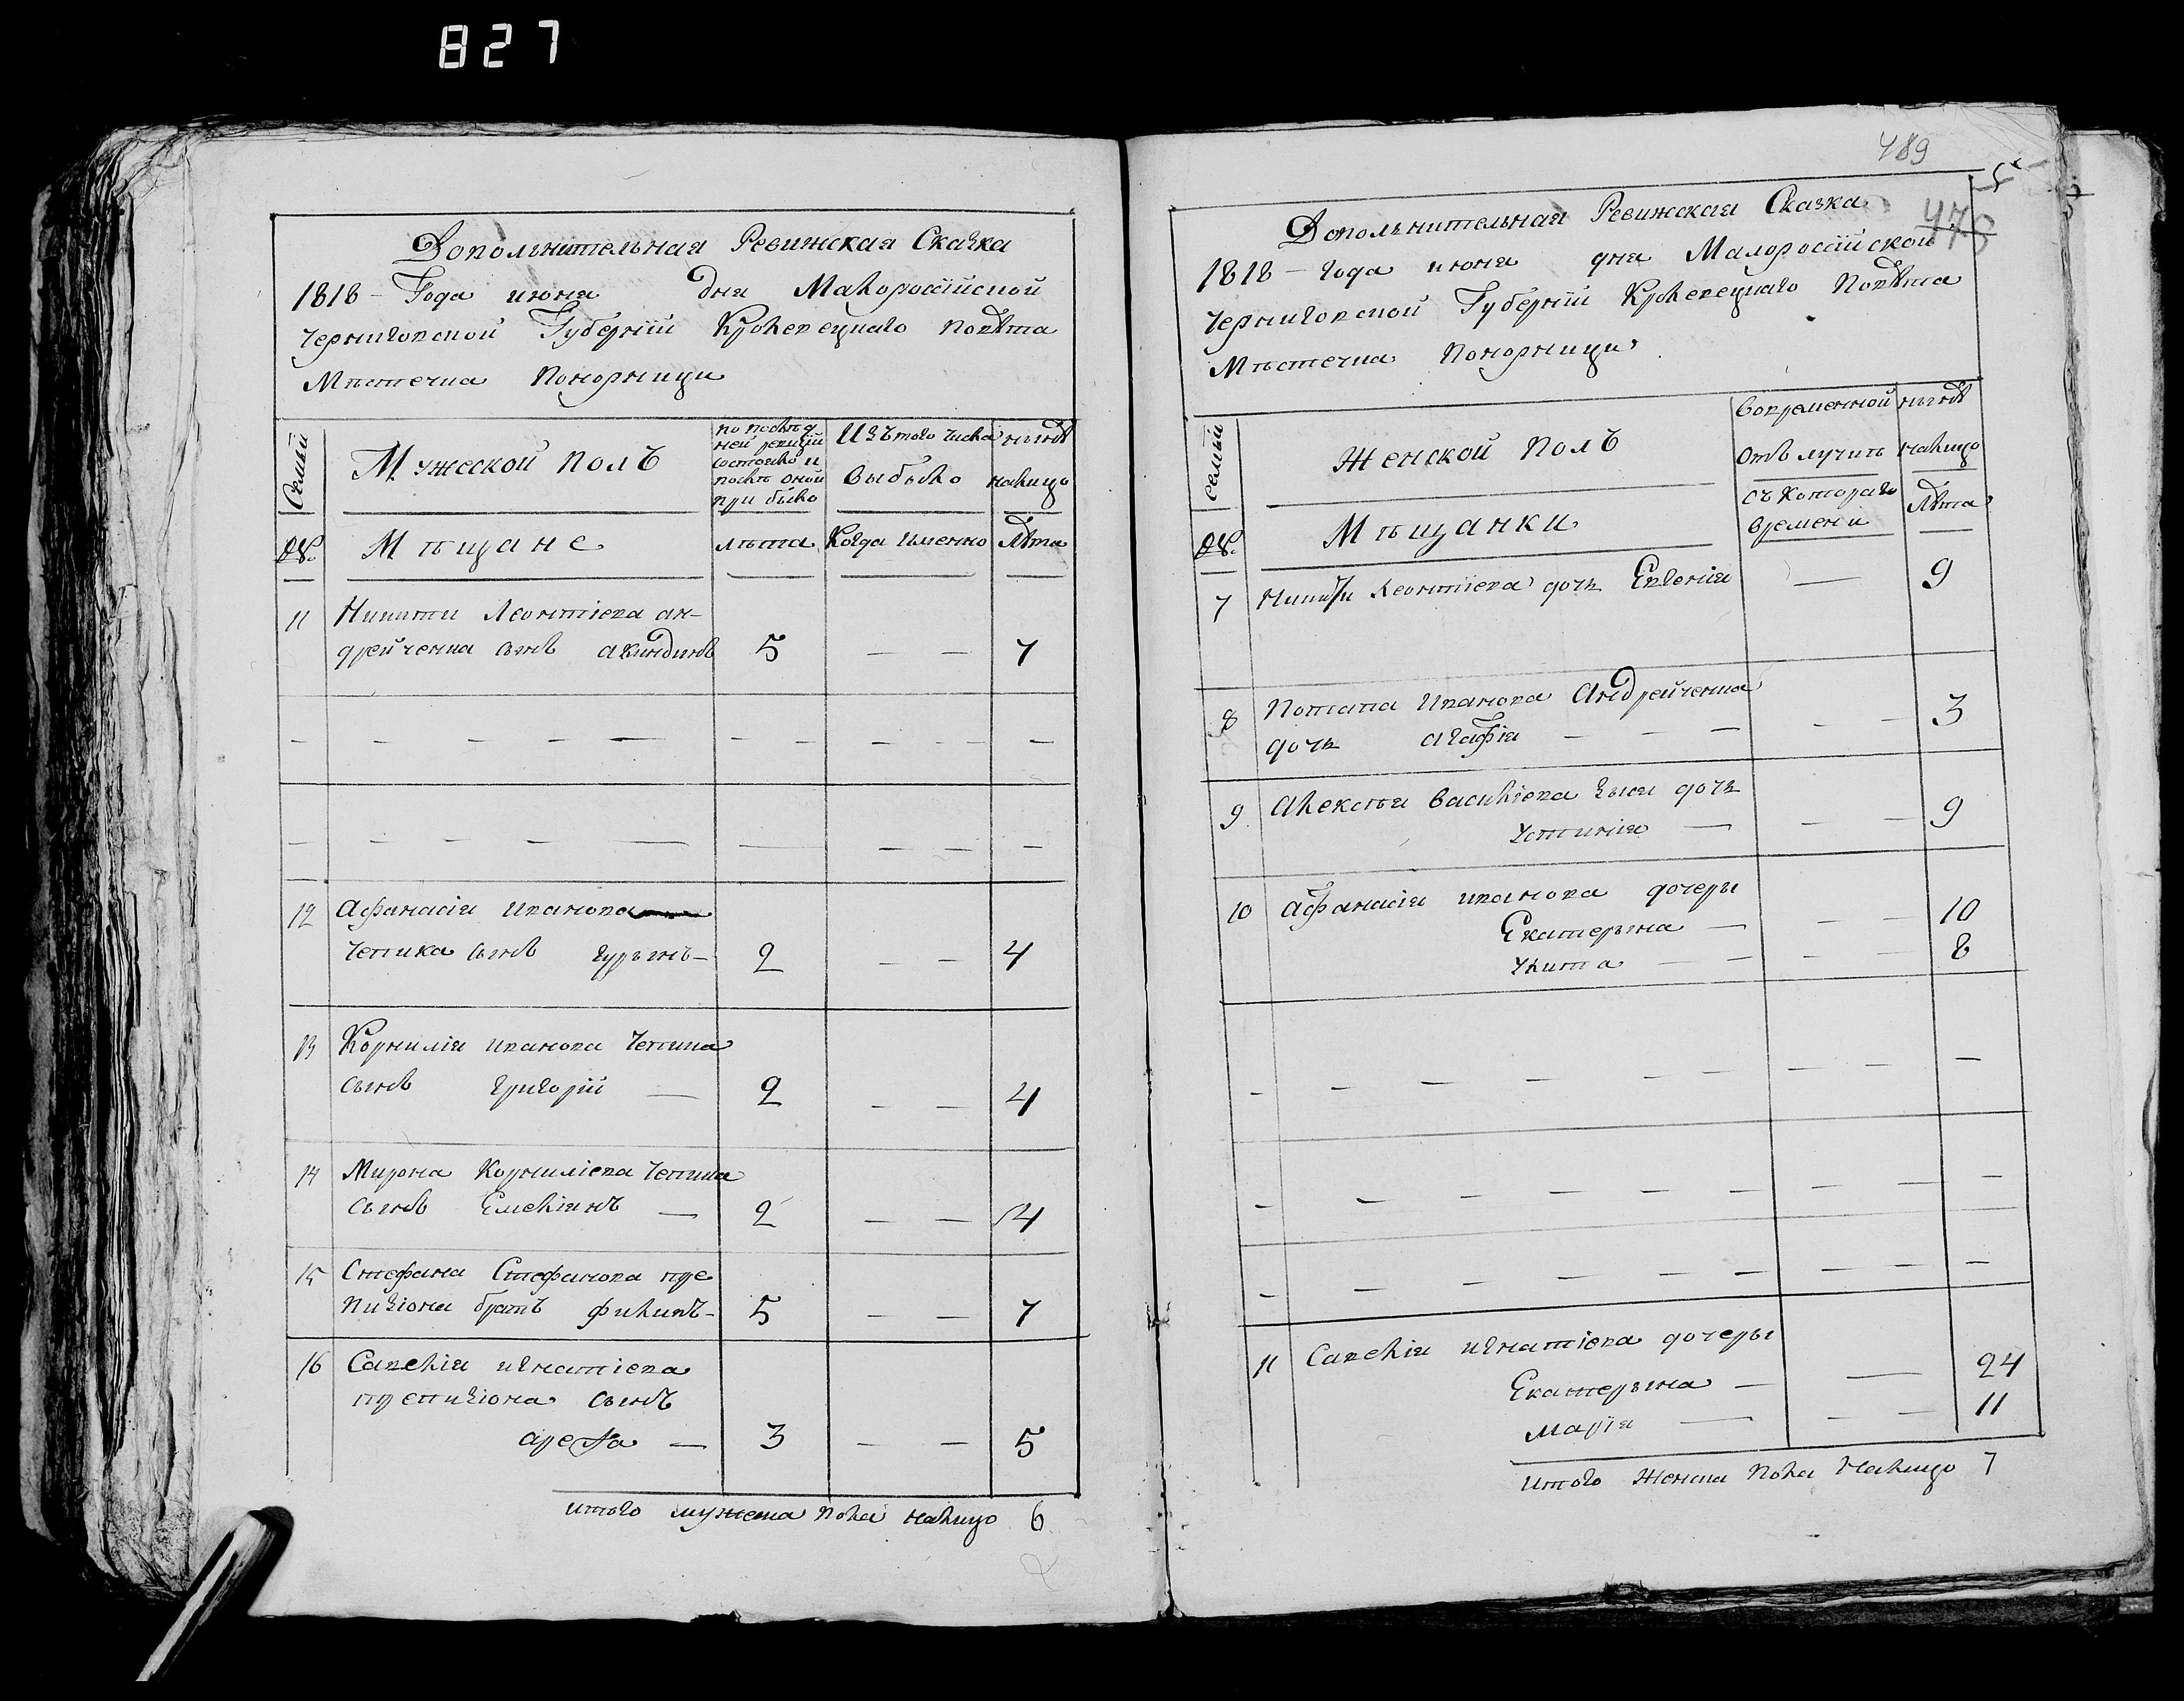 827
Дополнительная Ревижская Сказка
1818 – Года июня дня Малороссійской
Черниговской Губерніи Кролевецкаго повѣта
Мѣстечка Понорници
Семьи
Мужеской полъ
по послѣд
ней ревизіи
состояло и
послѣ оной
при было
Изъ того числа
выбыло
нынѣ
налицо
№.
Мѣщане
лѣта
Когда именно
Лѣта
11 Никиты Леонтіева ан–
дрейченка сынъ акиндинъ 5 — — 7
12 Афанасія иванова
чепика сынъ гурьянъ – 2 — — 4
13 Корнилія иванова Чепика
сынъ григорій — 2 — — 4
14 Мирона Корниліева Чепика
сынъ Емеліянъ — 2 — — 4
15 Стефана Стефанова пре
пизіона братъ филипъ – 5 — — 7
16 Савелія игнатіева
препизіона сынъ
арефа — 3 — — 5
итого мужеска пола налицо 6
489
5
478
Дополнительная Ревижская Сказка
1818 – года июня дня Малороссійской
Черниговской Губерніи Кролевецкаго Повѣта
Мѣстечка Понорници
семьи
Женской полъ
Вовременной
отлучкѣ
нынѣ
налицо
№.
Мѣщанки
съ котораго
времени
Лѣта
7 Никиты Леонтіева дочь Евгенія — 9
8 Потапа Иванова Андрейченка
дочь агафія — — — — — 3
9 Алексѣя Василіева зыси дочь
Устинія — — — 9
10 афанасія иванова дочеры
Екатерына — — — 10
Улита — — — — 8
11 Савелія игнатіева дочеры
Екатерына — — 24
марія — — — 11
итого Женска Пола Налицо 7